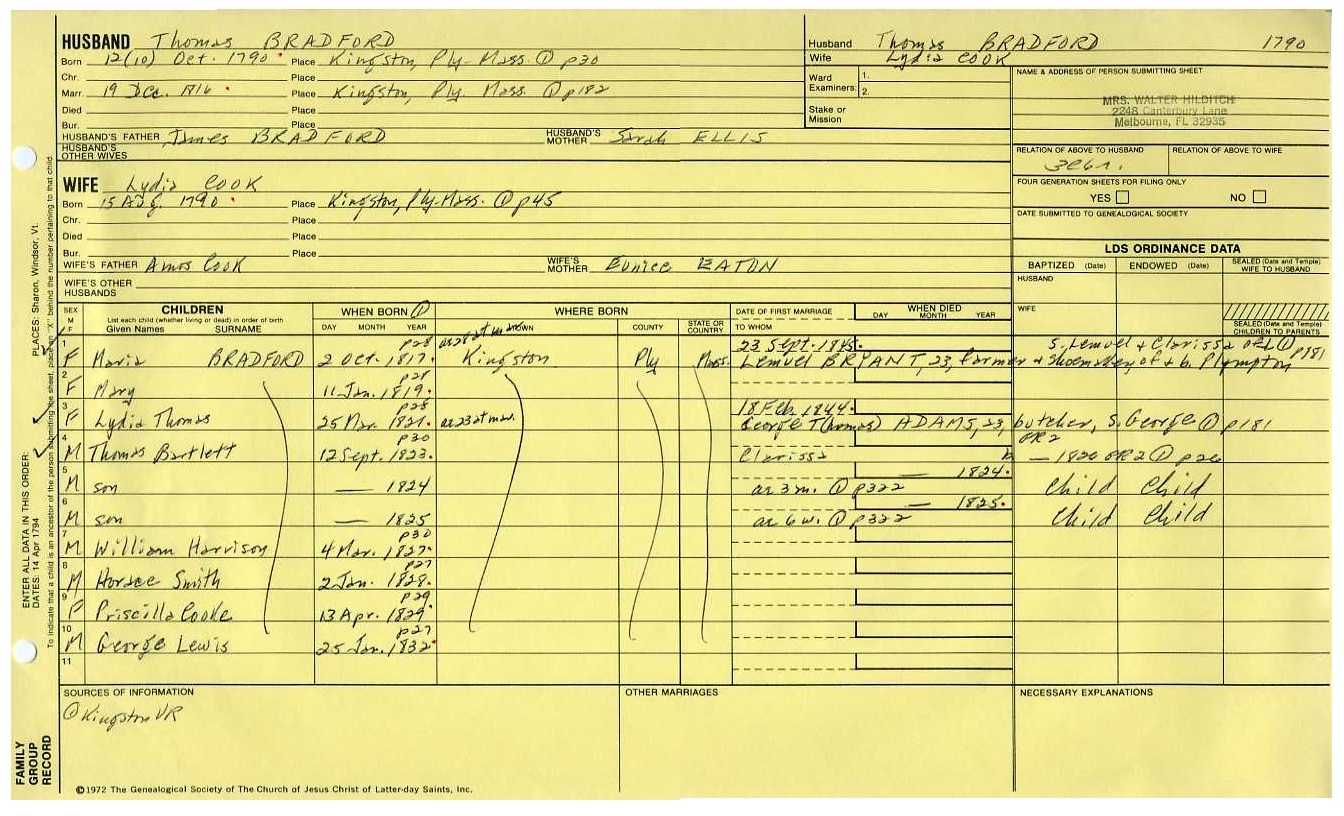 HUSBAND Thomas BRADFORD
Born 12(10) Oct. 1790 Place Kingston, Ply. Mass. ① p30
Chr. Place
Marr. 19 Dec. 1816 Place Kingston, Ply. Mass. ① p182
Died Place
Bur. Place
HUSBAND'S FATHER James BRADFORD HUSBAND'S MOTHER Sarah ELLIS
HUSBAND'S OTHER WIVES
WIFE Lydia COOK
Born 15 Aug. 1790 Place Kingston, Ply. Mass. ① p45
Chr. Place
Died Place
Bur. Place
WIFE'S FATHER Amos Cook WIFE'S MOTHER Eunice EATON
WIFE'S OTHER HUSBANDS
Husband Thomas BRADFORD 1790
Wife Lydia COOK
Ward Examiners: 1.
2.
Stake or Mission
NAME & ADDRESS OF PERSON SUBMITTING SHEET
MRS. WALTER HILDITCH
2248 Canterbury Lane
Melbourne, FL 32935
RELATION OF ABOVE TO HUSBAND RELATION OF ABOVE TO WIFE
FOUR GENERATION SHEETS FOR FILING ONLY
YES NO
DATE SUBMITTED TO GENEALOGICAL SOCIETY
LDS ORDINANCE DATA
BAPTIZED (Date) ENDOWED (Date) SEALED (Date and Temple) WIFE TO HUSBAND
HUSBAND
WIFE
SEALED (Date and Temple) CHILDREN TO PARENTS
SEX M F CHILDREN WHEN BORN ① WHERE BORN DATE OF FIRST MARRIAGE WHEN DIED
List each child (whether living or dead) in order of birth
Given Names SURNAME DAY MONTH YEAR TOWN COUNTY STATE OR COUNTRY TO WHOM DAY MONTH YEAR
1 p28 ae 28 at m. 23 Sept. 1845. s. Lemuel & Clarissa of L ①
F Maria BRADFORD 2 Oct. 1817. Kingston Ply Mass. Lemuel BRYANT, 23, farmer & Shoemaker of & b. Plympton p181
2 p28
F Mary 11 Jan. 1819.
3 p28 18 Feb. 1844.
F Lydia Thomas 25 Mar. 1821. ae 23 at mar. George T(homas) ADAMS, 23, butcher, s. George ① p181
4 p30 GR2
M Thomas Bartlett 12 Sept. 1823. Clarissa b — 1826 GR2 ① p26
5 — 1824.
M son — 1824 ae 3 m. ① p322 Child Child
6 — 1825.
M son — 1825 ae 6 w. ① p322 Child Child
7 p30
M William Harrison 4 Mar. 1827.
8 p27
M Horace Smith 2 Jan. 1828.
9 p29
F Priscilla Cooke 13 Apr. 1829.
10 p27
M George Lewis 25 Jan. 1832
11
SOURCES OF INFORMATION OTHER MARRIAGES NECESSARY EXPLANATIONS
① Kingston VR
©1972 The Genealogical Society of The Church of Jesus Christ of Latter-day Saints, Inc.
FAMILY GROUP RECORD
ENTER ALL DATA IN THIS ORDER:
DATES: 14 Apr 1794
PLACES: Sharon, Windsor, Vt.
To indicate that a child is an ancestor of the person submitting the sheet, place an "X" behind the number pertaining to that child.